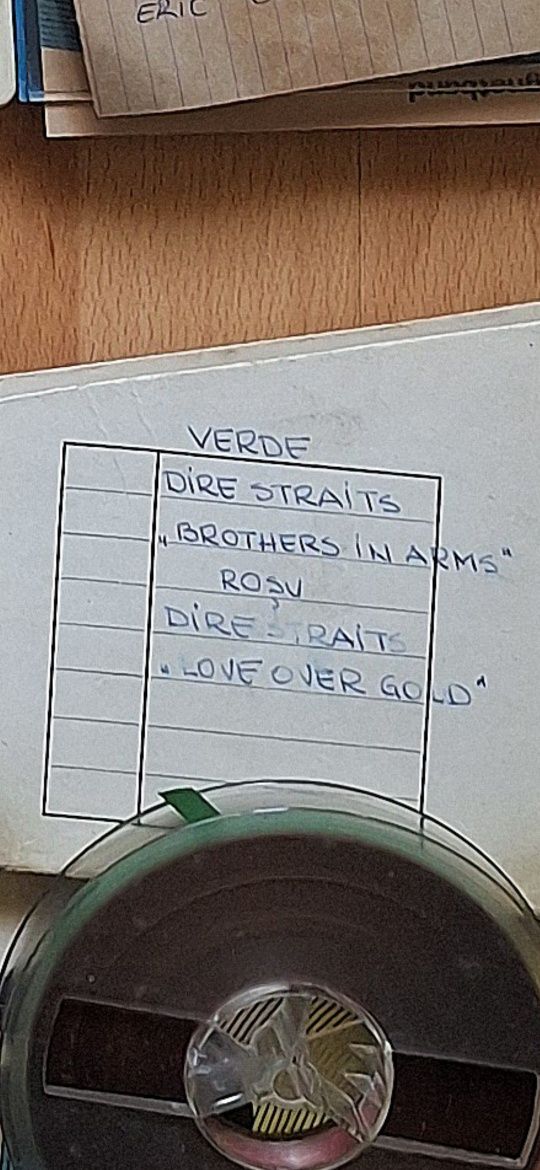 ERIC
VERDE
DIRE STRAITS
„BROTHERS IN ARMS"
ROȘU
DIRE STRAITS
„LOVE OVER GOLD"